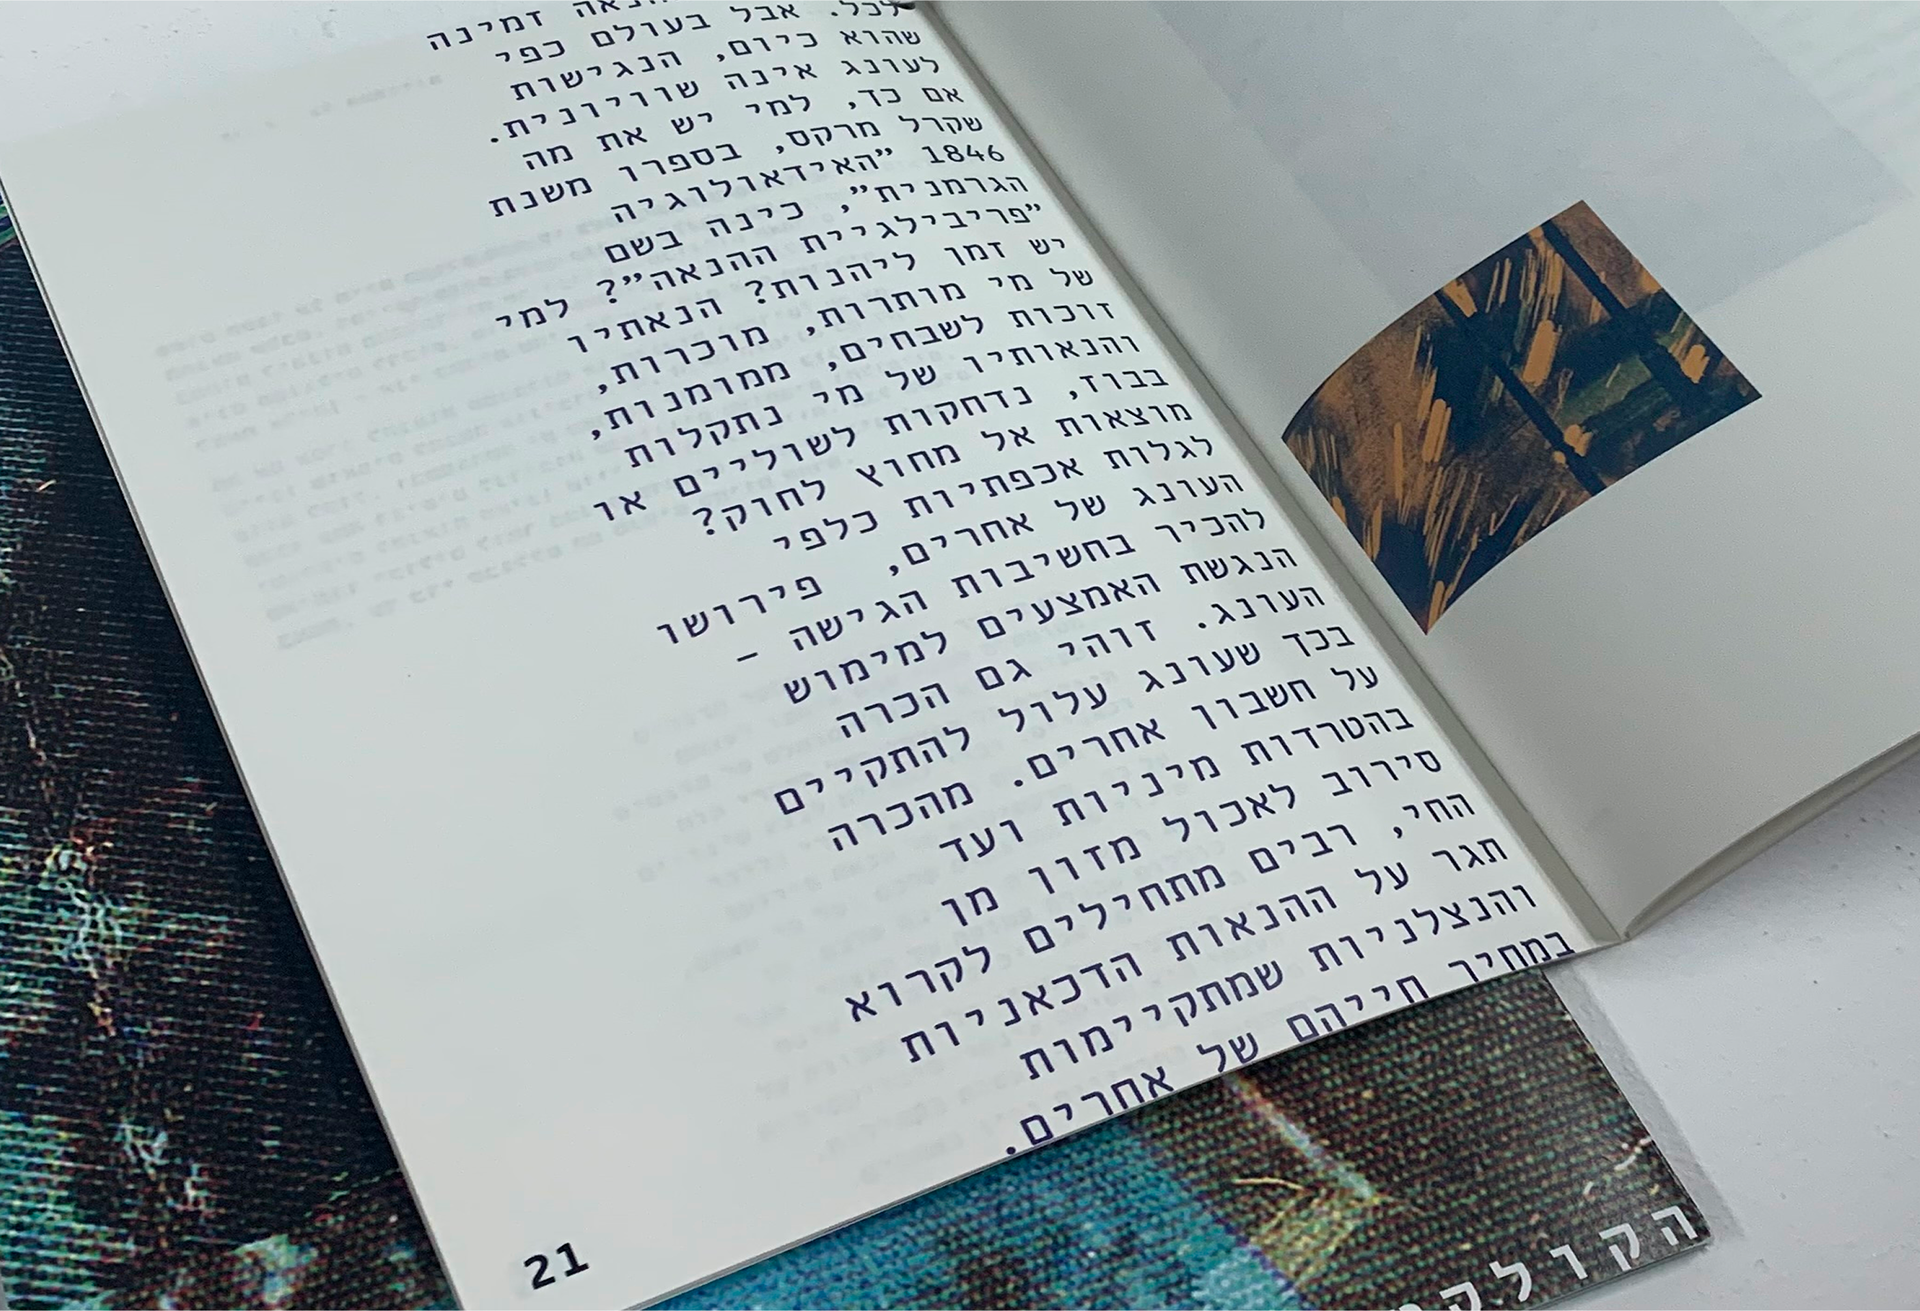 הנאה זמינה
לכל. אבל בעולם כפי
שהוא כיום, הנגישות
לעונג אינה שוויונית.
אם כך, למי יש את מה
שקרל מרקס, בספרו משנת
1846 ״האידאולוגיה
הגרמנית״, כינה בשם
״פריבילגיית ההנאה״? למי
יש זמן ליהנות? הנאתיו
של מי מותרות, מוכרות,
זוכות לשבחים, ממומנות,
והנאותיו של מי נתקלות
בבוז, נדחקות לשוליים או
מוצאות אל מחוץ לחוק?
לגלות אכפתיות כלפי
העונג של אחרים, פירושו
להכיר בחשיבות הגישה –
הנגשת האמצעים למימוש
העונג. זוהי גם הכרה
בכך שעונג עלול להתקיים
על חשבון אחרים. מהכרה
בהטרדות מיניות ועד
סירוב לאכול מזון מן
החי, רבים מתחילים לקרוא
תגר על ההנאות הדכאניות
והנצלניות שמתקיימות
במחיר חייהם של אחרים.
21